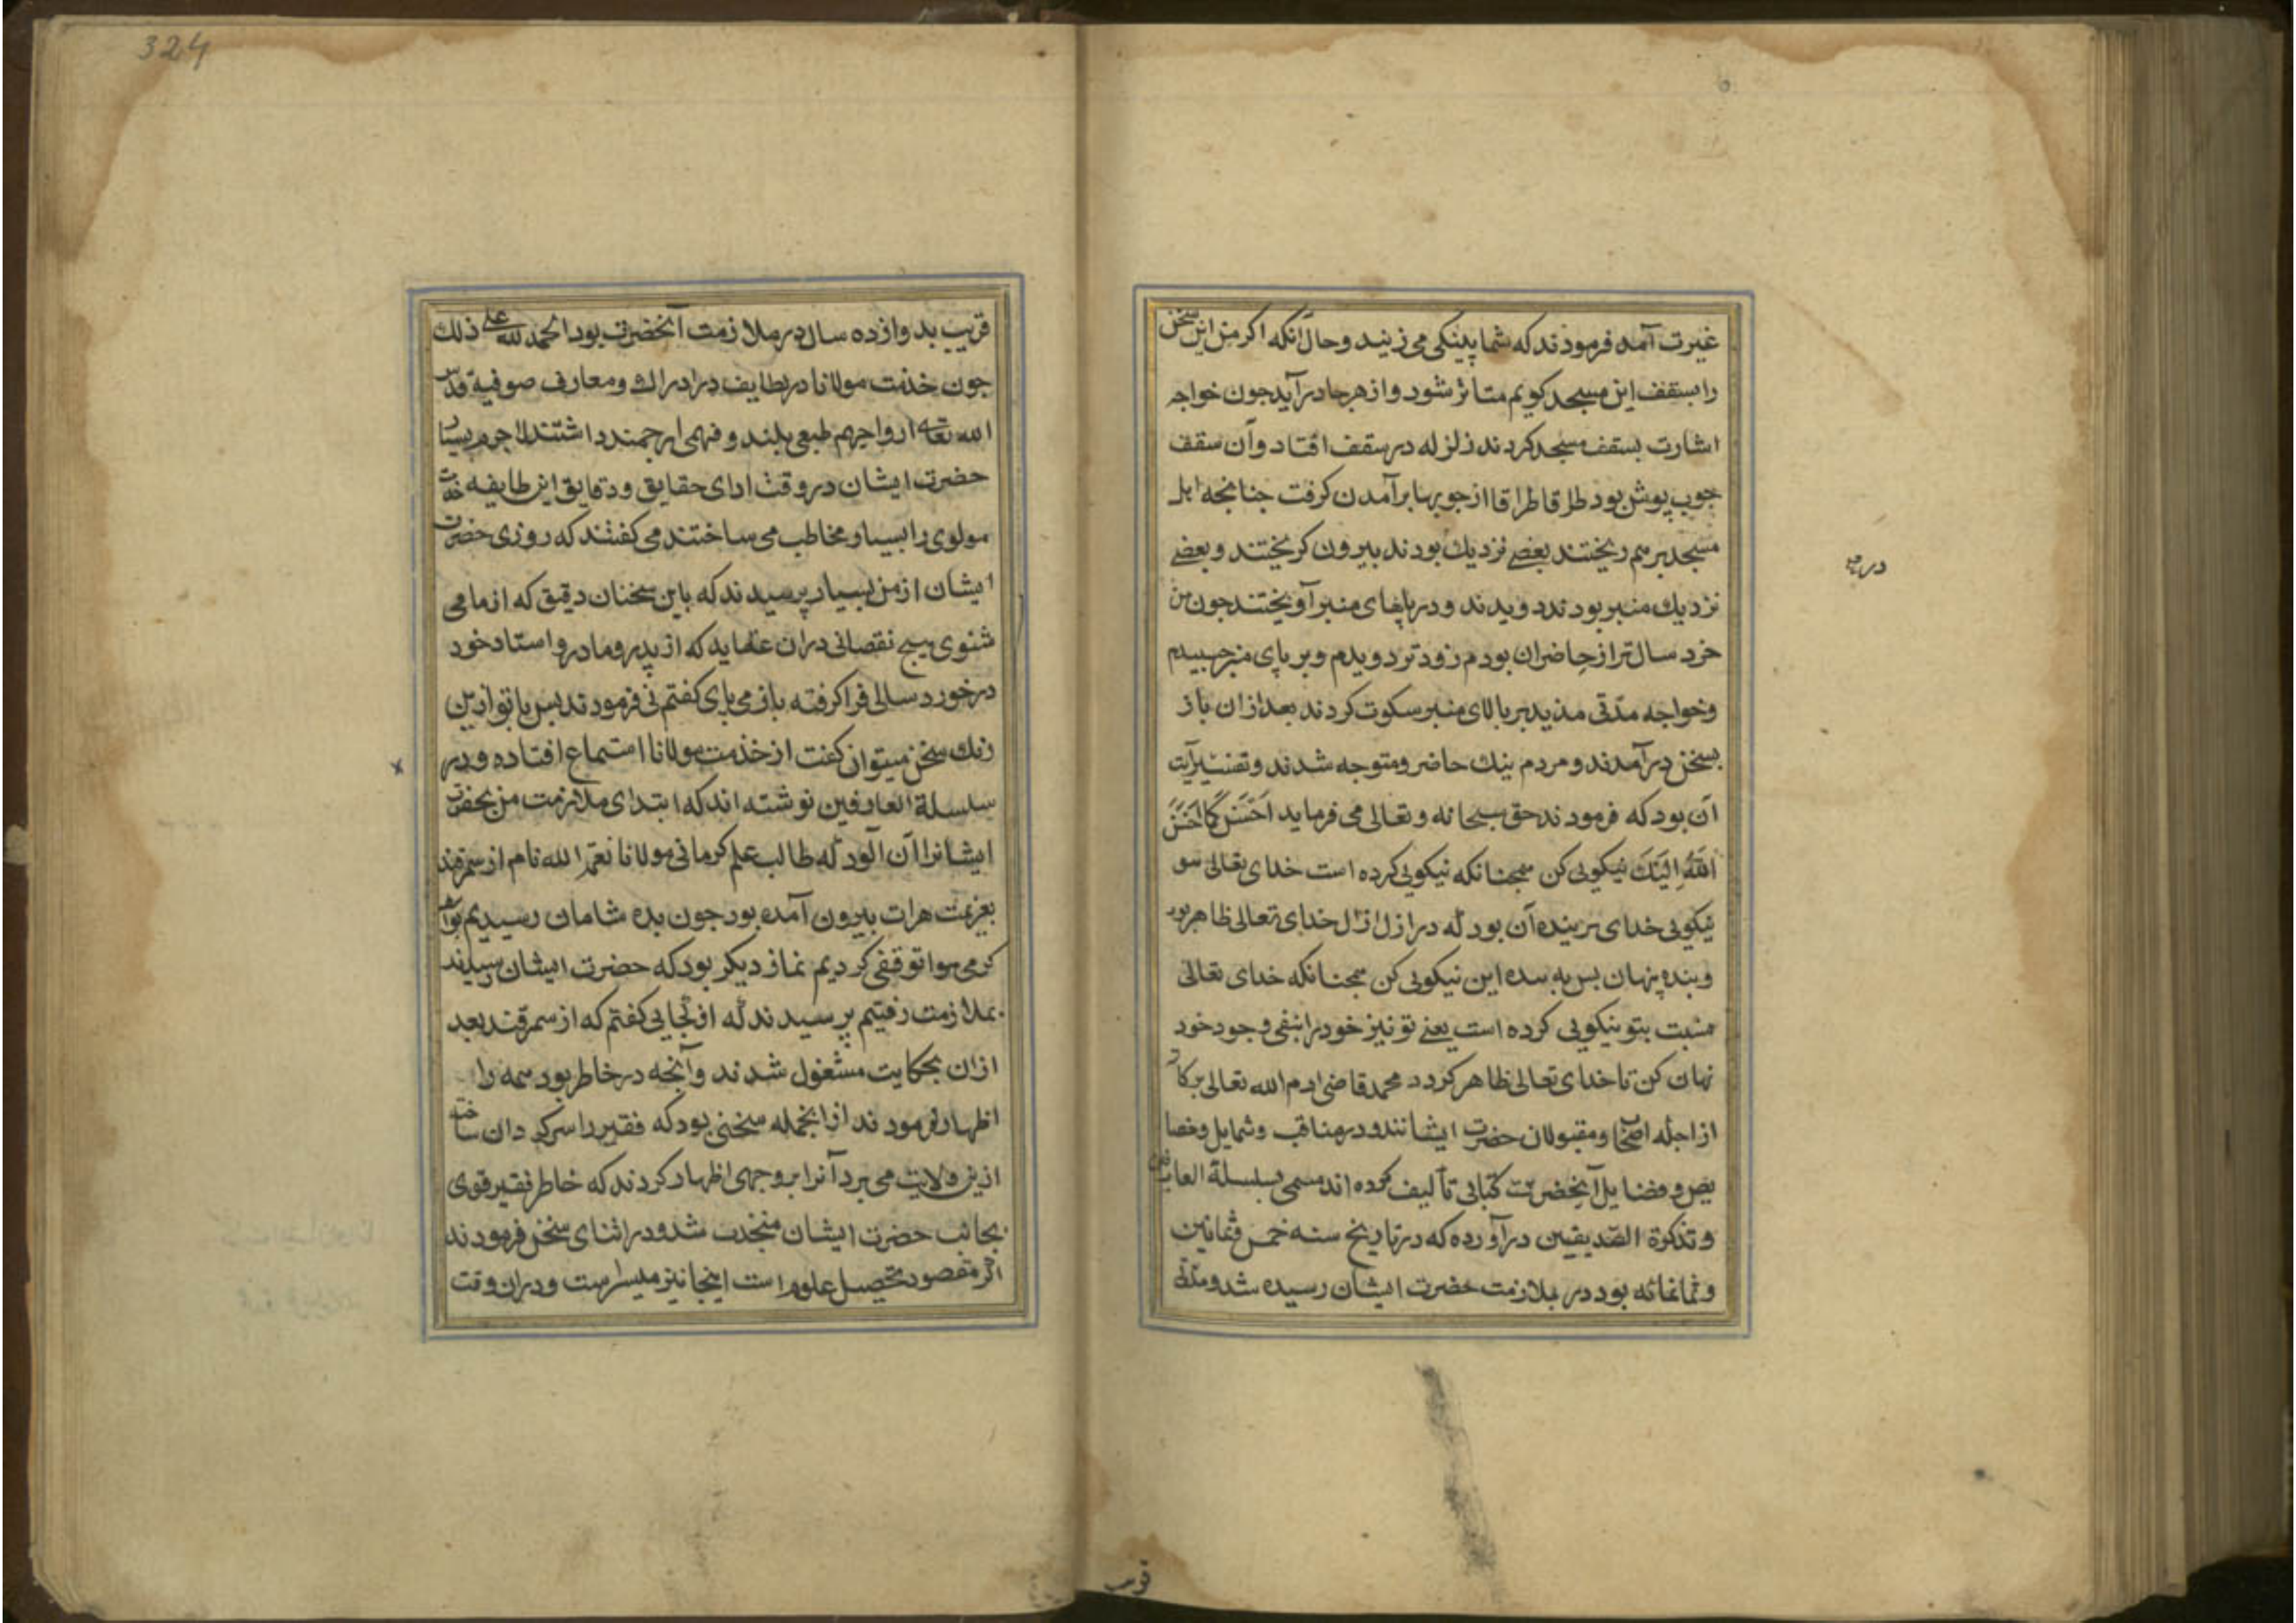 غیرت آمده فرمودند که شما پینکی می زنید و حال آنکه اکر من این سخن
را بسقف این مسجد کویم متاثر شود و از هر جا درآید جون خواجه
اشارت بسقف مسجد کردند زلزله در سقف افتاد و آن سقف
جوب پوش بود طراقا طراقا از جوبها برآمدن کرفت جنانجه اهل
مسجد برهم ریختند بعضی نزدیك بودند بیرون کریختند و بعضی
نزدیك منبر بودند دویدند و در پاهای منبر آویختند جون من
خرد سال تر از حاضران بودم زودتر دویدم و بر پای منبر جسبیدم
و خواجه مدّتی مدید بر بالای منبر سکوت کردند بعد ازان باز
بسخن درآمدند و مردم نیك حاضر و متوجه شدند و تفسیر آیت
آن بود که فرمودند حق سبحانه و تعالی می فرماید اَحْسَنْ كَمَا اَحْسَنَ
اللّٰهُ اِلَيْكَ نیکویی کن همجنانکه نیکویی کرده است خدای تعالی
نیکویی خدای بر بنده آن بود که در ازل ازل خدای تعالی ظاهر بود
و بنده پنهان بس به این نیکویی کن همجنانکه خدای تعالی
بتو نیکویی کرده است یعنی تو نیز خود را بنفی وجود خود
نهان کن تا خدای تعالی ظاهر کردد محمد قاضی ادام الله تعالی برکاته
از اجلّه اصحاب و مقبولان حضرت ایشانند و در مناقب و شمایل و خصا
یص و فضایل آنحضرت کتابی تألیف کرده اند مسمی بسلسلة العارفین
و تذکرة الصّدیقین درآورده که در تاریخ سنه خمس و ثمانین
و ثمانمائه بود در ملازمت حضرت ایشان رسیده شد و مدّتی
درجه
قریب
324
قریب بدوازده سال در ملازمت آنحضرت بود الحمد لله علی ذلك
جون خدمت مولانا در لطایف در ادراك و معارف صوفیة قدس
الله تعالی ارواحهم طبعی بلند و فهمی ارجمند داشتند لاجرم بسیار
حضرت ایشان در وقت ادای حقایق و دقایق این طایفه خدمت
مولوی را بسیار مخاطب می ساختند می کفتند که روزی حضرت
ایشان از من بسیار پرسیدند که باین سخنان دقیق که از ما می
شنوی هیج نقصانی دران عقاید که از پدر و مادر و استاد خود
در خورد سالی فرا کرفته باز می یابی کفتم نی فرمودند بس با تو ازین
سخن میتوان کفت از خدمت مولانا استماع افتاده و در
سلسلة العارفین نوشته اند که ابتدای ملازمت من بحضرت
ایشانرا آن بود که طالب علم کرمانی مولانا نعمة الله نام از سمرقند
بعزیمت هرات بیرون آمده بود جون بده شامان رسیدیم بواسطه
کرمی هوا توقفی کردیم نماز دیکر بود که حضرت ایشان رسیدند
بملازمت رفتیم پرسیدند که از کجایی کفتم که از سمرقند بعد
ازان بحکایت مشغول شدند و آنجه در خاطر بود همه را
اظهار فرمودند ازانجمله سخنی بود که فقیر را سرکردان ساخته
ازین ولایت می برد آنرا بروجهی اظهار کردند که خاطر فقیر قوی
بجانب حضرت ایشان منجذب شد و در اثنای سخن فرمودند
اکر مقصود تحصیل علوم است اینجا نیز میسرست و دران وقت